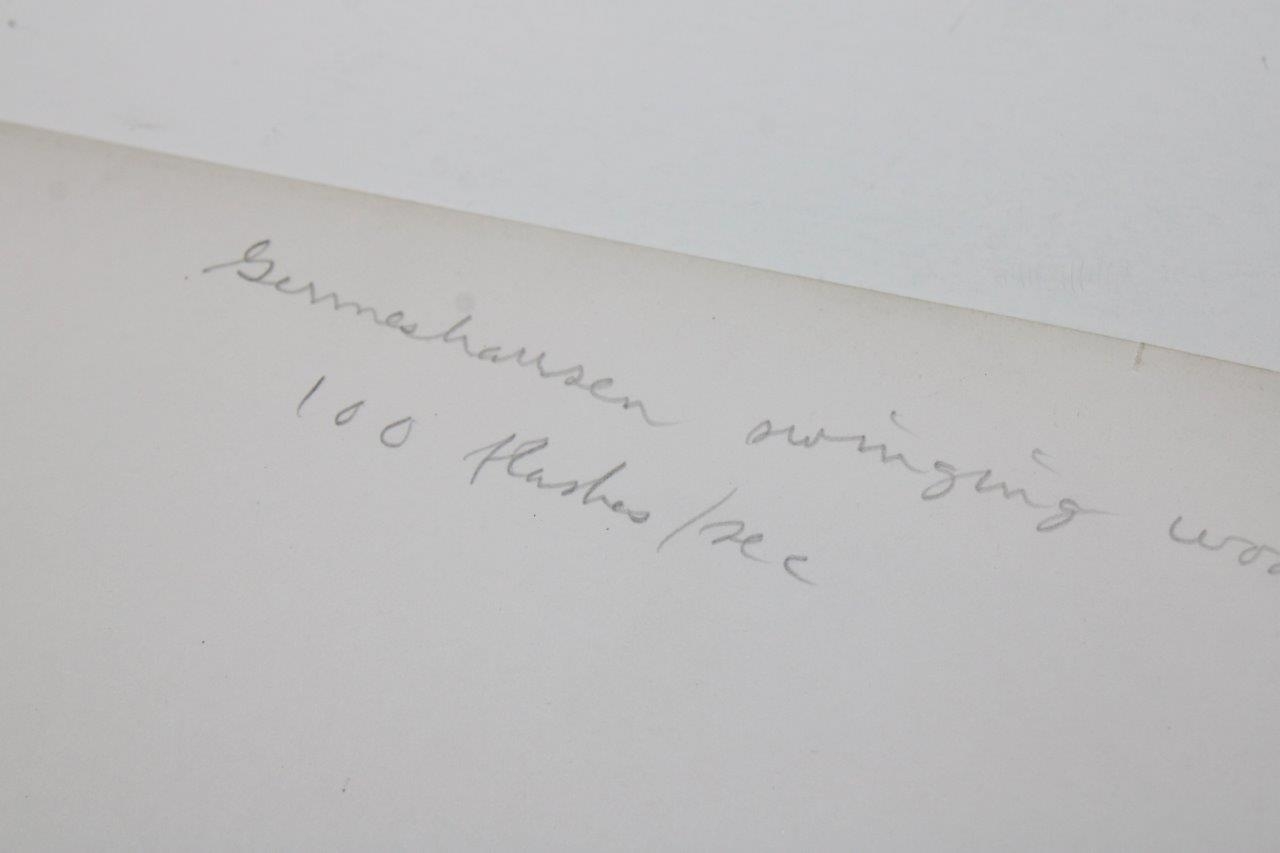 Germeshausen swinging woo
100 flashes/sec